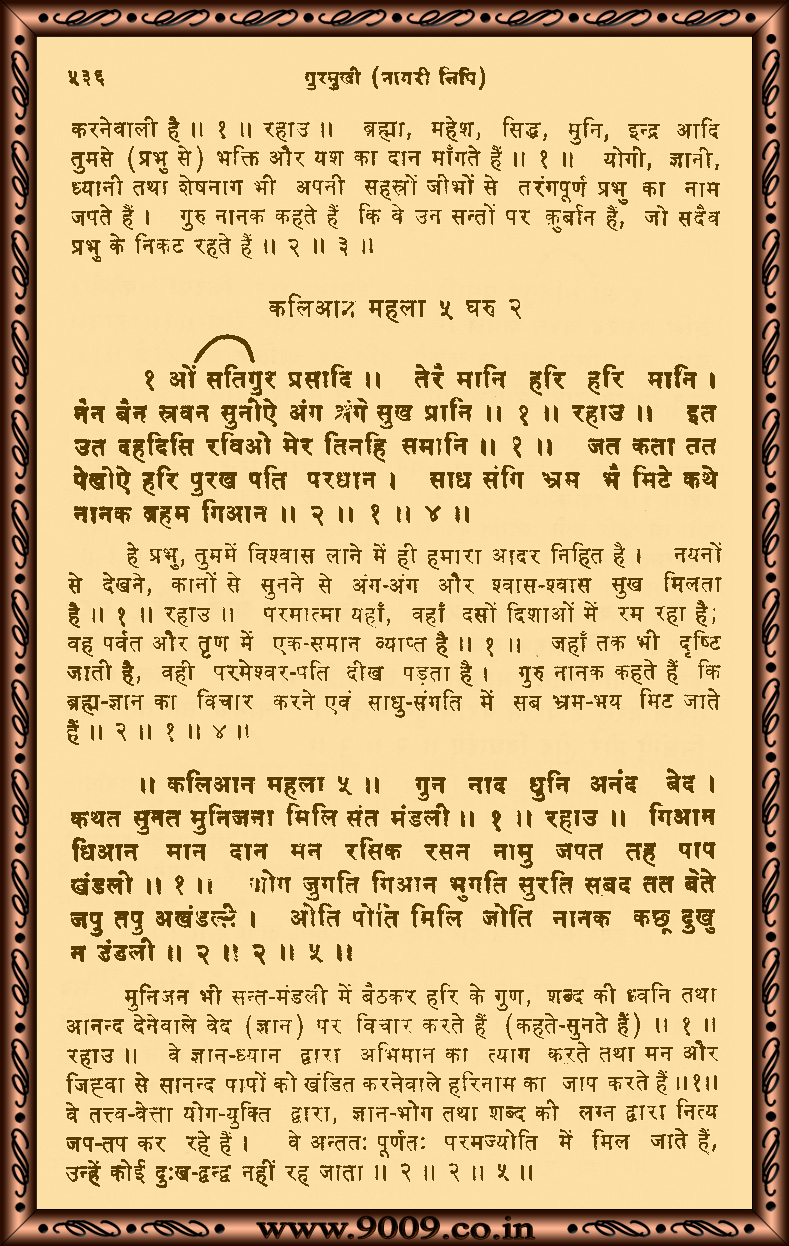 ५३६ गुरमुखी (नागरी लिपि)
करनेवाली है ॥ १ ॥ रहाउ ॥ ब्रह्मा, महेश, सिद्ध, मुनि, इन्द्र आदि
तुमसे (प्रभु से) भक्ति और यश का दान माँगते हैं ॥ १ ॥ योगी, ज्ञानी,
ध्यानी तथा शेषनाग भी अपनी सहस्रों जीभों से तरंगपूर्ण प्रभु का नाम
जपते हैं । गुरु नानक कहते हैं कि वे उन सन्तों पर क़ुर्बान हैं, जो सदैव
प्रभु के निकट रहते हैं ॥ २ ॥ ३ ॥
कलिआन महला ५ घरु २
१ ओं सतिगुर प्रसादि ॥ तेरै मानि हरि हरि मानि ।
नैन बैन स्रवन सुनीऐ अंग अंगे सुख प्रानि ॥ १ ॥ रहाउ ॥ इत
उत दहदिसि रविओ मेर तिनहि समानि ॥ १ ॥ जत कता तत
पेखीऐ हरि पुरख पति परधान । साध संगि भ्रम भै मिटे कथे
नानक ब्रहम गिआन ॥ २ ॥ १ ॥ ४ ॥
हे प्रभु, तुममें विश्वास लाने में ही हमारा आदर निहित है । नयनों
से देखने, कानों से सुनने से अंग-अंग और श्वास-श्वास सुख मिलता
है ॥ १ ॥ रहाउ ॥ परमात्मा यहाँ, वहाँ दसों दिशाओं में रम रहा है;
वह पर्वत और तृण में एक-समान व्याप्त है ॥ १ ॥ जहाँ तक भी दृष्टि
जाती है, वही परमेश्वर-पति दीख पड़ता है । गुरु नानक कहते हैं कि
ब्रह्म-ज्ञान का विचार करने एवं साधु-संगति में सब भ्रम-भय मिट जाते
हैं ॥ २ ॥ १ ॥ ४ ॥
॥ कलिआन महला ५ ॥ गुन नाद धुनि अनंद बेद ।
कथत सुनत मुनिजना मिलि संत मंडली ॥ १ ॥ रहाउ ॥ गिआन
धिआन मान दान मन रसिक रसन नामु जपत तह पाप
खंडली ॥ १ ॥ जोग जुगति गिआन भुगति सुरति सबद तत बेते
जपु तपु अखंडली । ओति पोति मिलि जोति नानक कछू दुखु
न डंडली ॥ २ ॥ २ ॥ ५ ॥
मुनिजन भी सन्त-मंडली में बैठकर हरि के गुण, शब्द की ध्वनि तथा
आनन्द देनेवाले वेद (ज्ञान) पर विचार करते हैं (कहते-सुनते हैं) ॥ १ ॥
रहाउ ॥ वे ज्ञान-ध्यान द्वारा अभिमान का त्याग करते तथा मन और
जिह्वा से सानन्द पापों को खंडित करनेवाले हरिनाम का जाप करते हैं ॥१॥
वे तत्त्व-वेत्ता योग-युक्ति द्वारा, ज्ञान-भोग तथा शब्द की लग्न द्वारा नित्य
जप-तप कर रहे हैं । वे अन्ततः पूर्णतः परमज्योति में मिल जाते हैं,
उन्हें कोई दुःख-द्वन्द्व नहीं रह जाता ॥ २ ॥ २ ॥ ५ ॥
www.9009.co.in